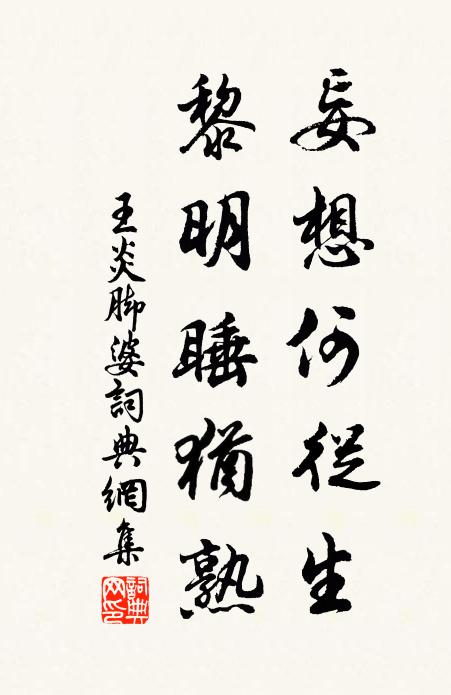 妄想何從生
黎明睡猶熟
王炎脚婆詞典網集
詞典網印